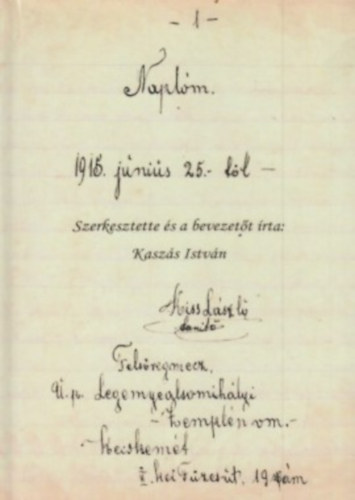 - 1 -
Naplóm.
1915. június 25.- től -
Szerkesztette és a bevezetőt írta:
Kaszás István
Kiss László
tanító
Felsőregmecz,
U.p. Legenyealsomihályi
- Zemplén vm. -
- Kecskemét
Füzesút, 19 szám